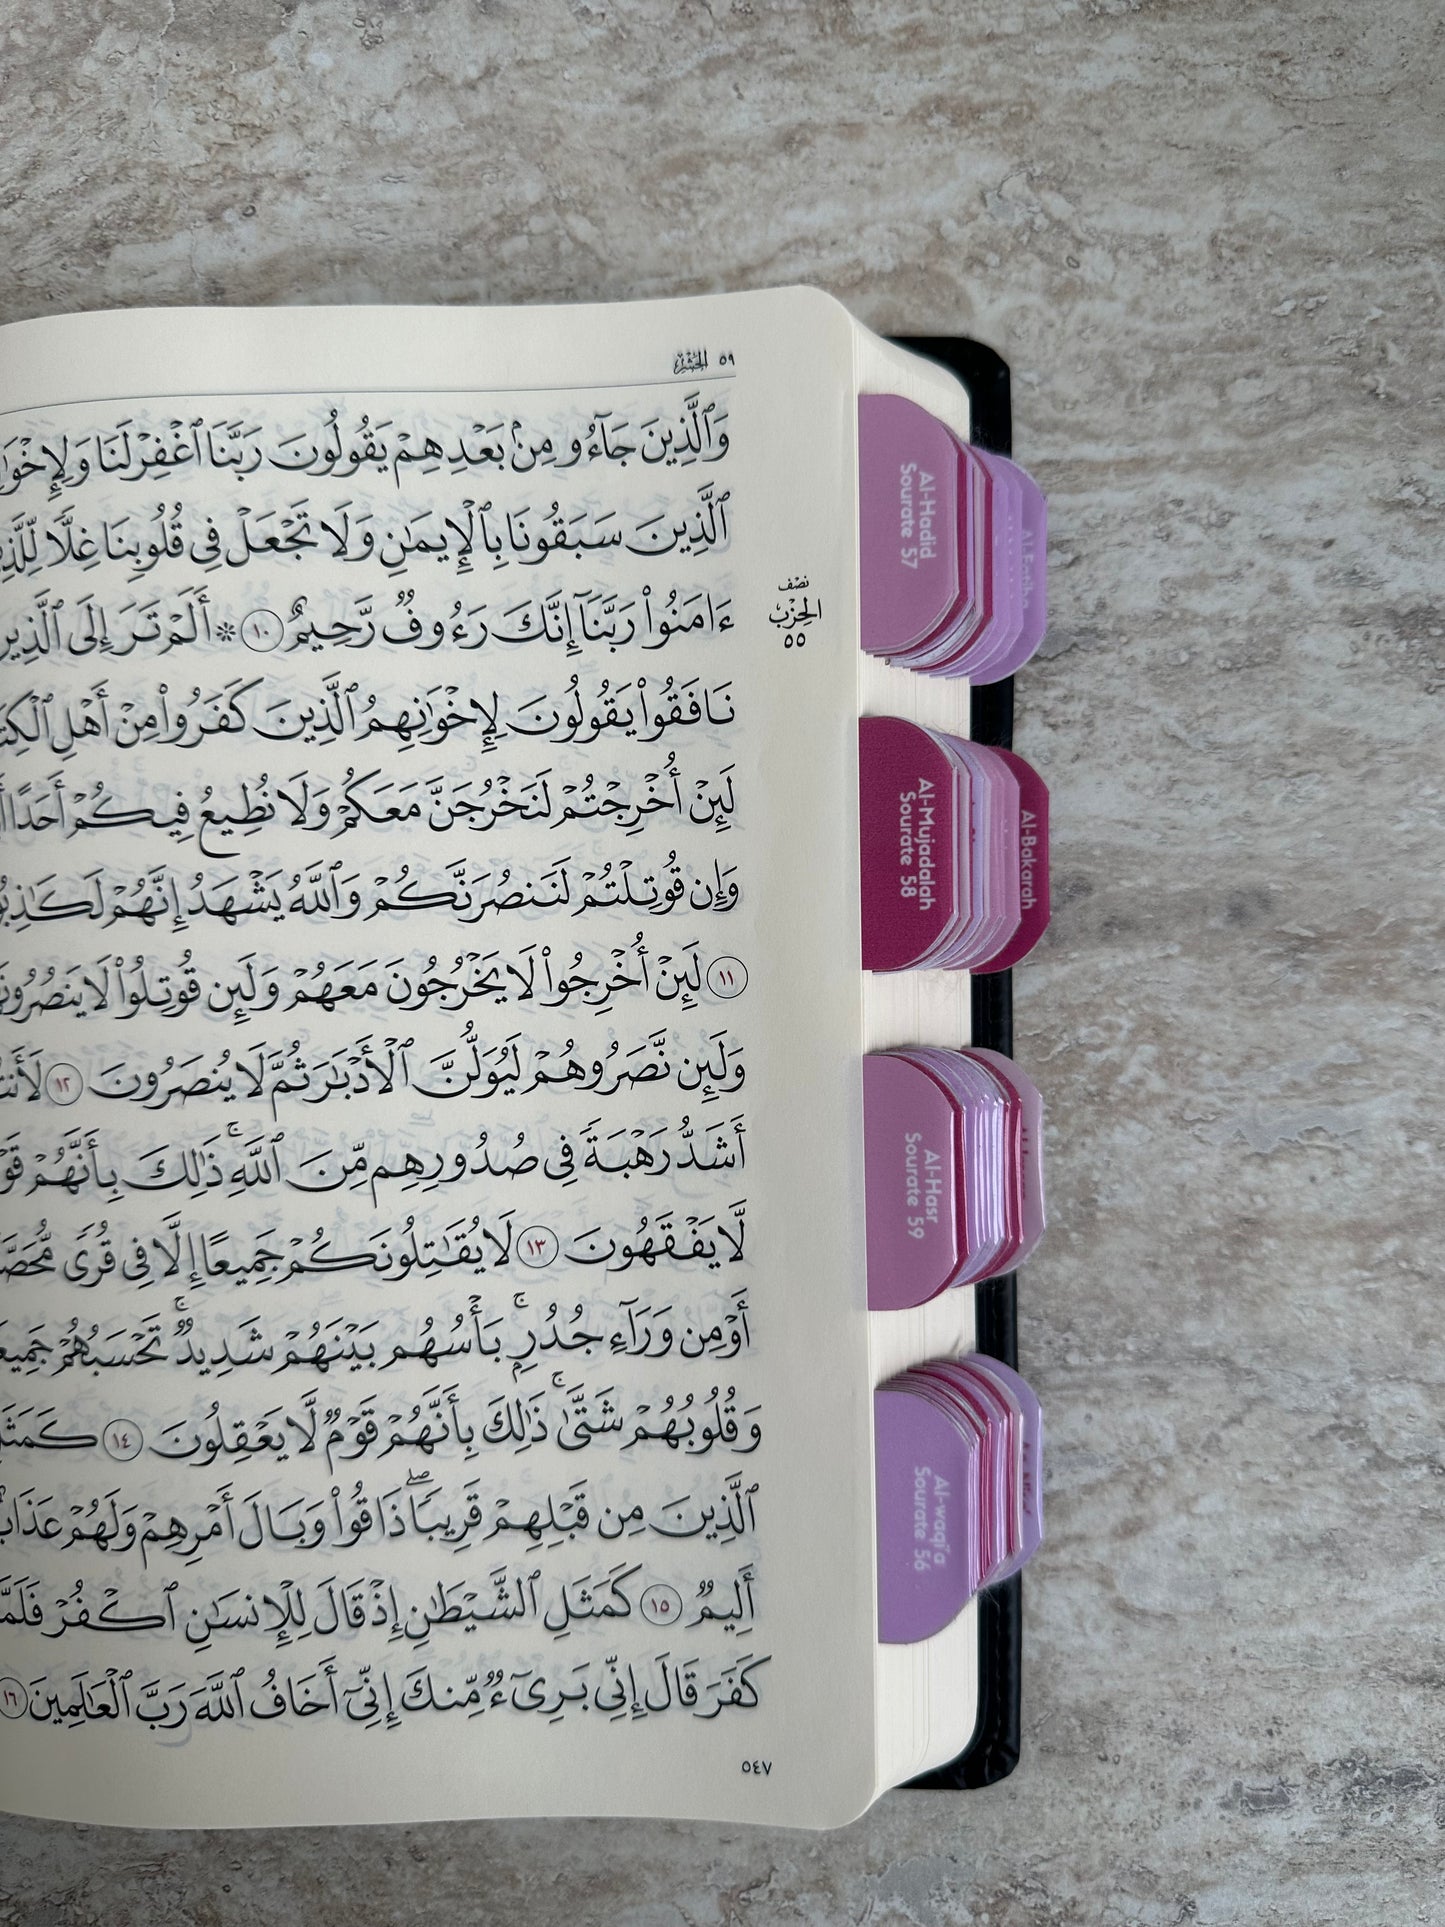 ٥٩ الحشر
وَٱلَّذِينَ جَآءُو مِنۢ بَعْدِهِمْ يَقُولُونَ رَبَّنَا ٱغْفِرْ لَنَا
ٱلَّذِينَ سَبَقُونَا بِٱلْإِيمَـٰنِ وَلَا تَجْعَلْ فِى قُلُوبِنَا غِلًّا
ءَامَنُوا۟ رَبَّنَآ إِنَّكَ رَءُوفٌ رَّحِيمٌ ١٠ ۞ أَلَمْ تَرَ إِلَى
نصف
الحزب
٥٥
نَافَقُوا۟ يَقُولُونَ لِإِخْوَٰنِهِمُ ٱلَّذِينَ كَفَرُوا۟ مِنْ أَهْلِ
لَئِنْ أُخْرِجْتُمْ لَنَخْرُجَنَّ مَعَكُمْ وَلَا نُطِيعُ فِيكُمْ أَحَدًا
وَإِن قُوتِلْتُمْ لَنَنصُرَنَّكُمْ وَٱللَّهُ يَشْهَدُ إِنَّهُمْ
١١ لَئِنْ أُخْرِجُوا۟ لَا يَخْرُجُونَ مَعَهُمْ وَلَئِن قُوتِلُوا۟ لَا
وَلَئِن نَّصَرُوهُمْ لَيُوَلُّنَّ ٱلْأَدْبَـٰرَ ثُمَّ لَا يُنصَرُونَ ١٢
أَشَدُّ رَهْبَةً فِى صُدُورِهِم مِّنَ ٱللَّهِ ۚ ذَٰلِكَ بِأَنَّهُمْ
لَّا يَفْقَهُونَ ١٣ لَا يُقَـٰتِلُونَكُمْ جَمِيعًا إِلَّا فِى قُرًى
أَوْ مِن وَرَآءِ جُدُرٍۭ ۚ بَأْسُهُم بَيْنَهُمْ شَدِيدٌ ۚ تَحْسَبُهُمْ
وَقُلُوبُهُمْ شَتَّىٰ ۚ ذَٰلِكَ بِأَنَّهُمْ قَوْمٌ لَّا يَعْقِلُونَ ١٤
ٱلَّذِينَ مِن قَبْلِهِمْ قَرِيبًا ۖ ذَاقُوا۟ وَبَالَ أَمْرِهِمْ وَلَهُمْ
أَلِيمٌ ١٥ كَمَثَلِ ٱلشَّيْطَـٰنِ إِذْ قَالَ لِلْإِنسَـٰنِ ٱكْفُرْ
كَفَرَ قَالَ إِنِّى بَرِىٓءٌ مِّنكَ إِنِّىٓ أَخَافُ ٱللَّهَ رَبَّ ٱلْعَـٰلَمِينَ ١٦
٥٤٧
Al-Hadid
Sourate 57
Al-Fatiha
Al-Mujadalah
Sourate 58
Al-Bakarah
Al-Hasr
Sourate 59
Al-waqi'a
Sourate 56